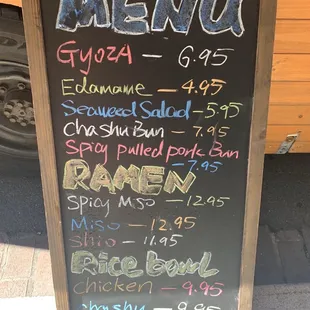 MENU
GyozA — 6.95
Edamame — 4.95
Seaweed Salad - 5.95
Chashu Bun — 7.95
Spicy pulled pork Bun
- 7.95
RAMEN
SPicy Miso — 12.95
Miso — 12.95
Shio — 11.95
Rice bowl
chicken — 9.95
chashu — 9.95